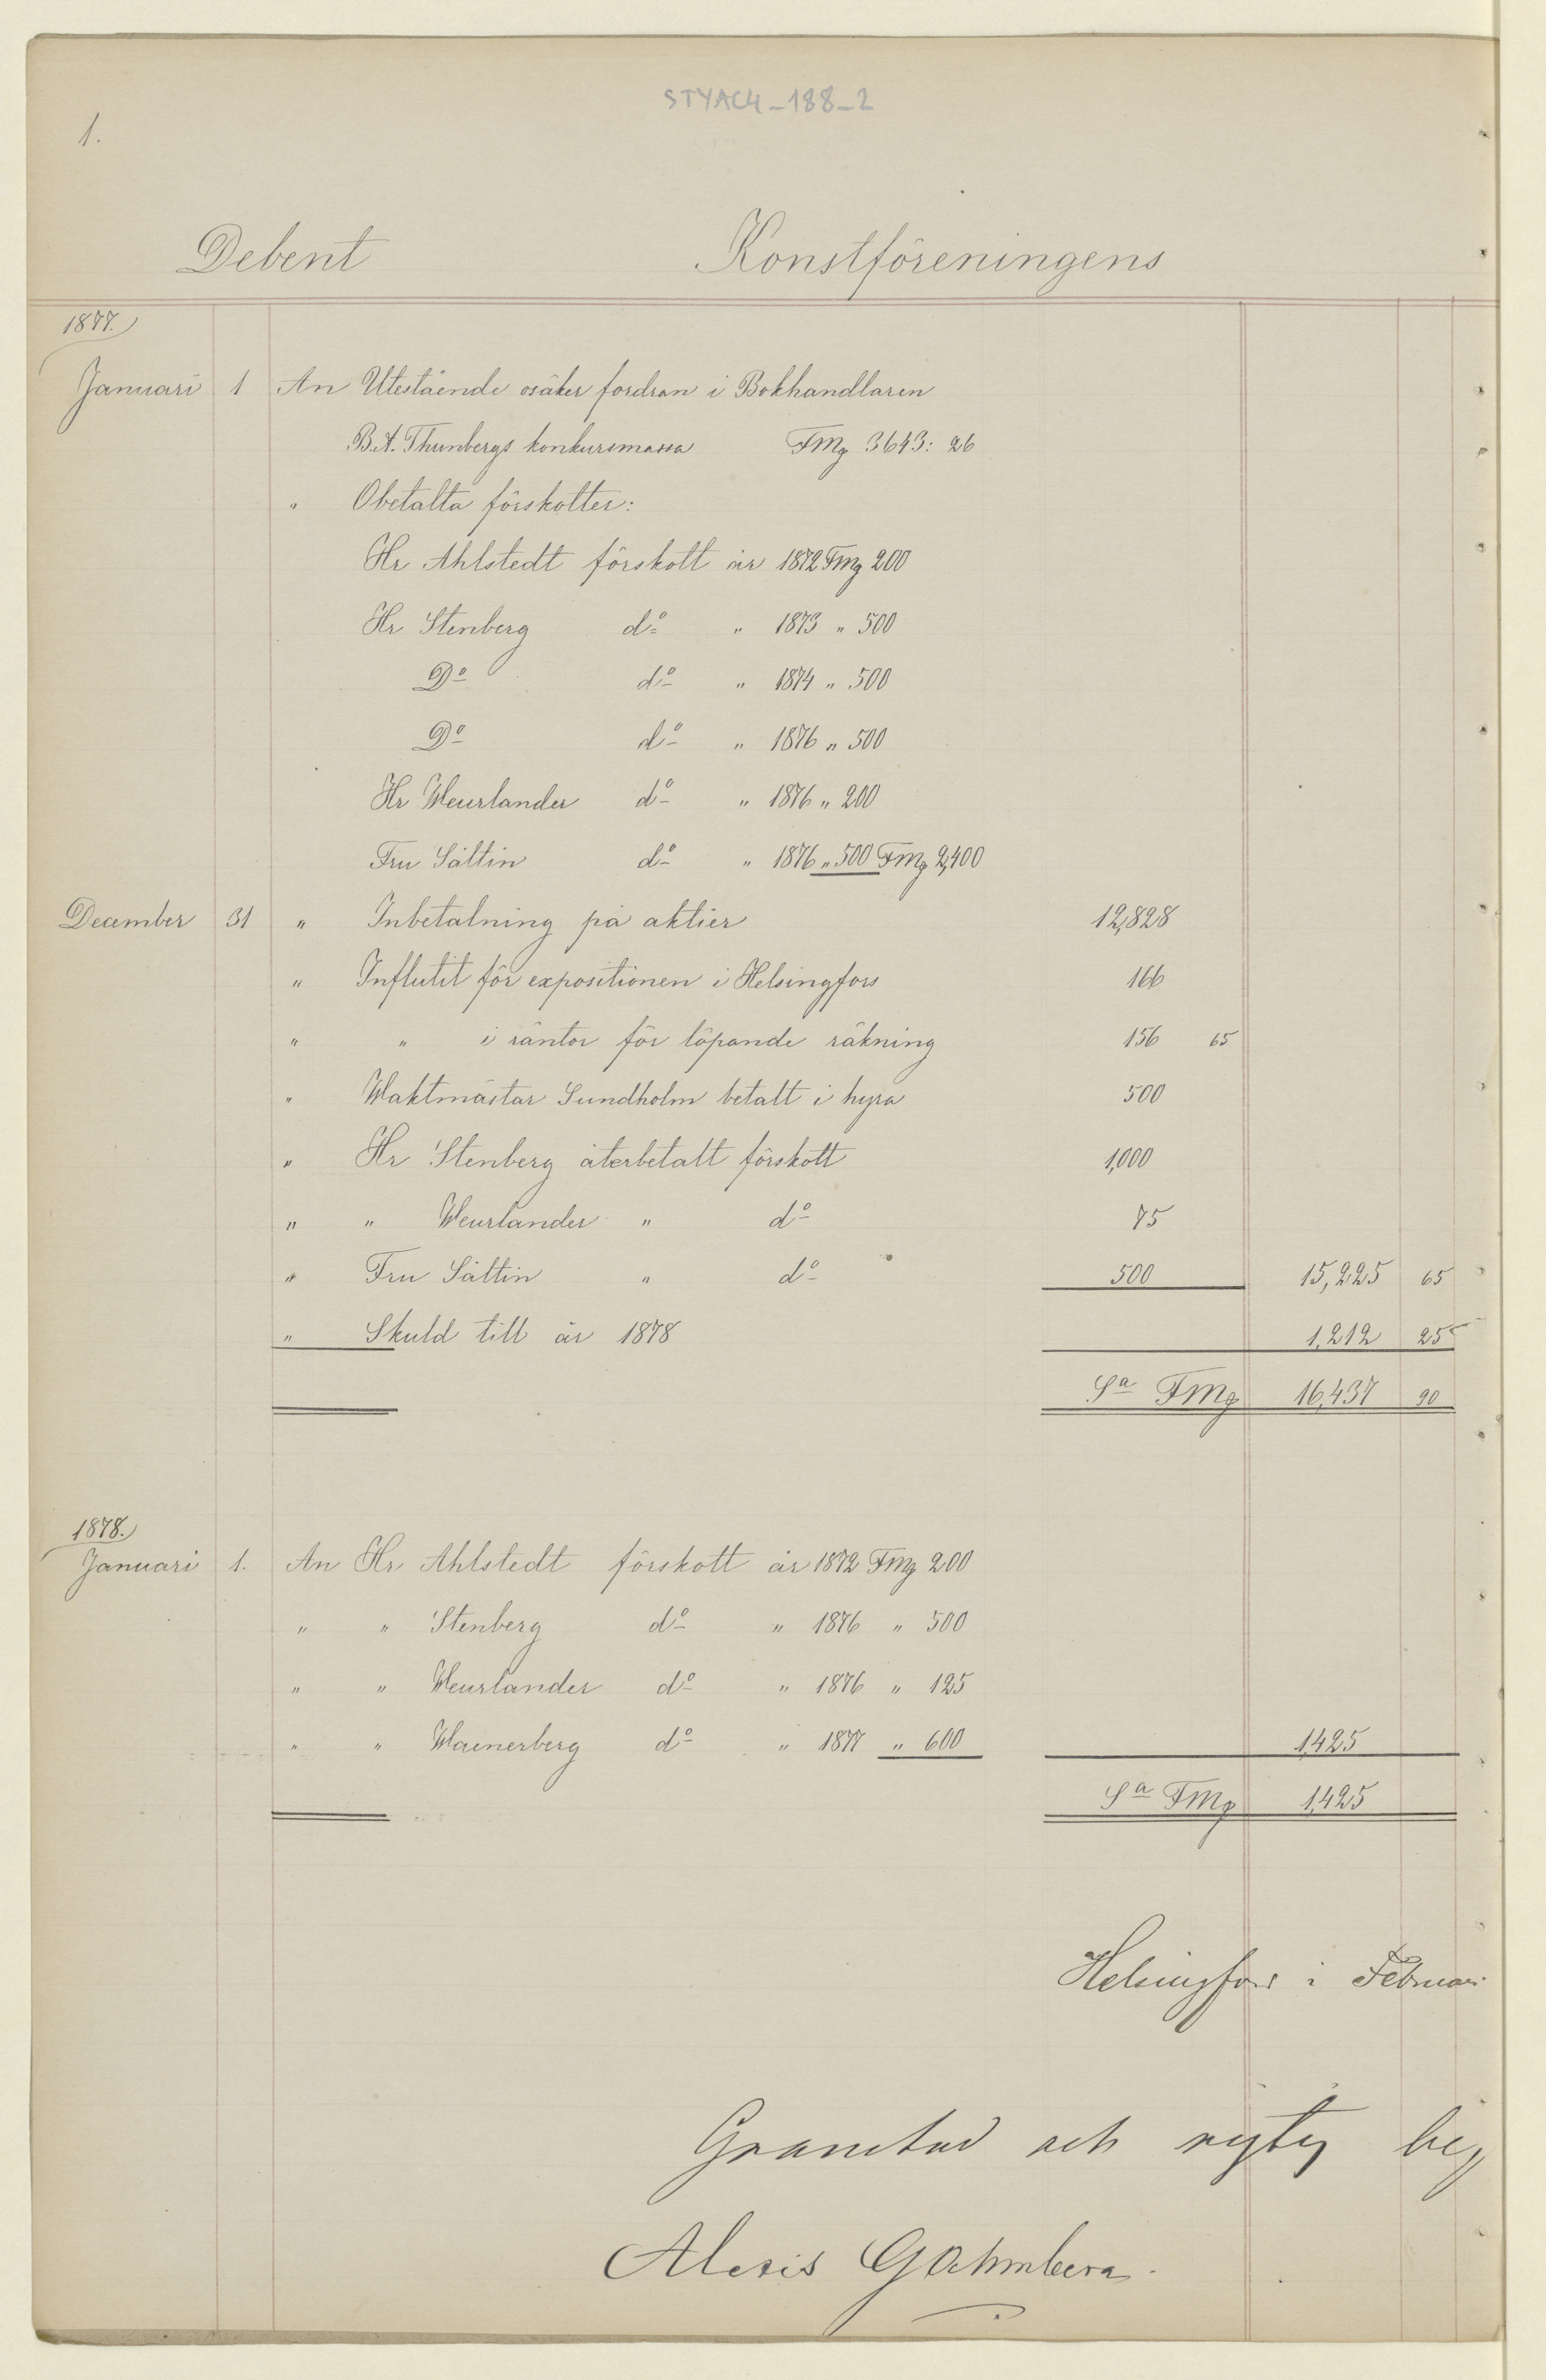 STYAC4_188_2
1.
Debent Konstföreningens
1877.
Januari 1 An Utestående osäker fordran i Bokhandlaren
B.A. Thunbergs konkursmassa FMg 3643: 26
" Obetalta förskotter:
Hr Ahlstedt förskott år 1872 FMg 200
Hr Stenberg do " 1873 " 500
Do do " 1874 " 500
Do do " 1876 " 500
Hr Weurlander do " 1876 " 200
Fru Såltin do " 1876 " 500 FMg 2,400
December 31 " Inbetalning på aktier 12,828
" Influtit för expositionen i Helsingfors 166
" " i räntor för löpande räkning 156 65
" Waktmästar Sundholm betalt i hyra 500
" Hr Stenberg återbetalt förskott 1,000
" " Weurlander " do 75
" Fru Såltin " do 500 15,225 65
" Skuld till år 1878 1,212 25
Sa FMg 16,437 90
1878.
Januari 1. An Hr Ahlstedt förskott år 1872 FMg 200
" " Stenberg do " 1876 " 500
" " Weurlander do " 1876 " 125
" " Wainerberg do " 1877 " 600 1,425
Sa FMg 1,425
Helsingfors i Februari
Granskad och rigtig
Alexis